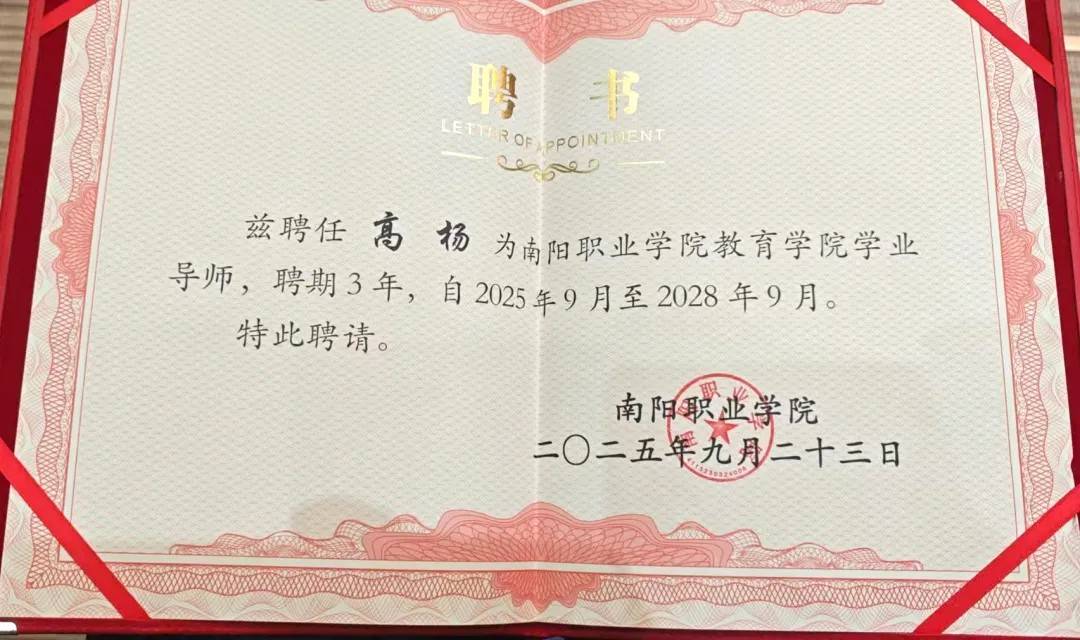 聘 书
LETTER OF APPOINTMENT
兹聘任 高 杨 为南阳职业学院教育学院学业
导师，聘期3年，自2025年9月至2028年9月。
特此聘请。
南阳职业学院
二〇二五年九月二十三日
南阳职业学院